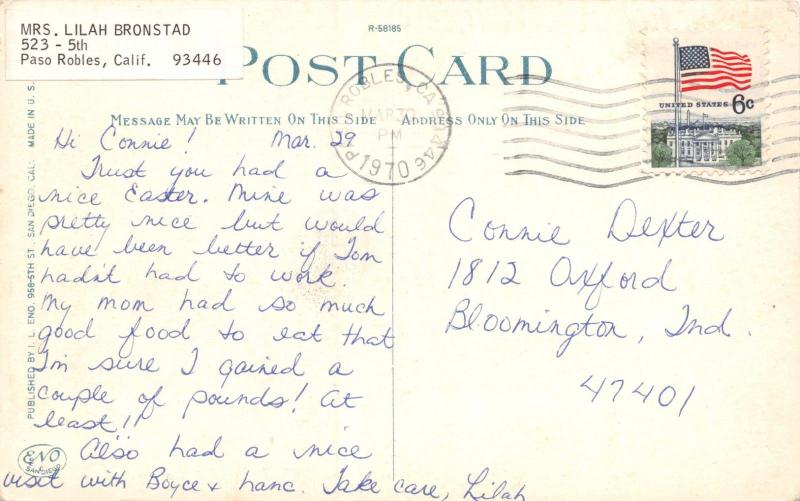 MRS. LILAH BRONSTAD
523 - 5th
Paso Robles, Calif. 93446
R-58185
POST CARD
MESSAGE MAY BE WRITTEN ON THIS SIDE
ADDRESS ONLY ON THIS SIDE
PUBLISHED BY I. L. ENO, 958-5TH ST. SAN DIEGO, CAL. MADE IN U. S.
ENO
SAN DIEGO
ROBLES, CA
MAR 30
PM
1970
UNITED STATES 6c
Hi Connie! Mar. 29
Trust you had a
nice Easter. Mine was
pretty nice but would
have been better if Tom
hadn't had to work.
My mom had so much
good food to eat that
I'm sure I gained a
couple of pounds! At
least!!
Also had a nice
visit with Boyce + Nanc. Take care, Lilah
Connie Dexter
1812 Oxford
Bloomington, Ind.
47401